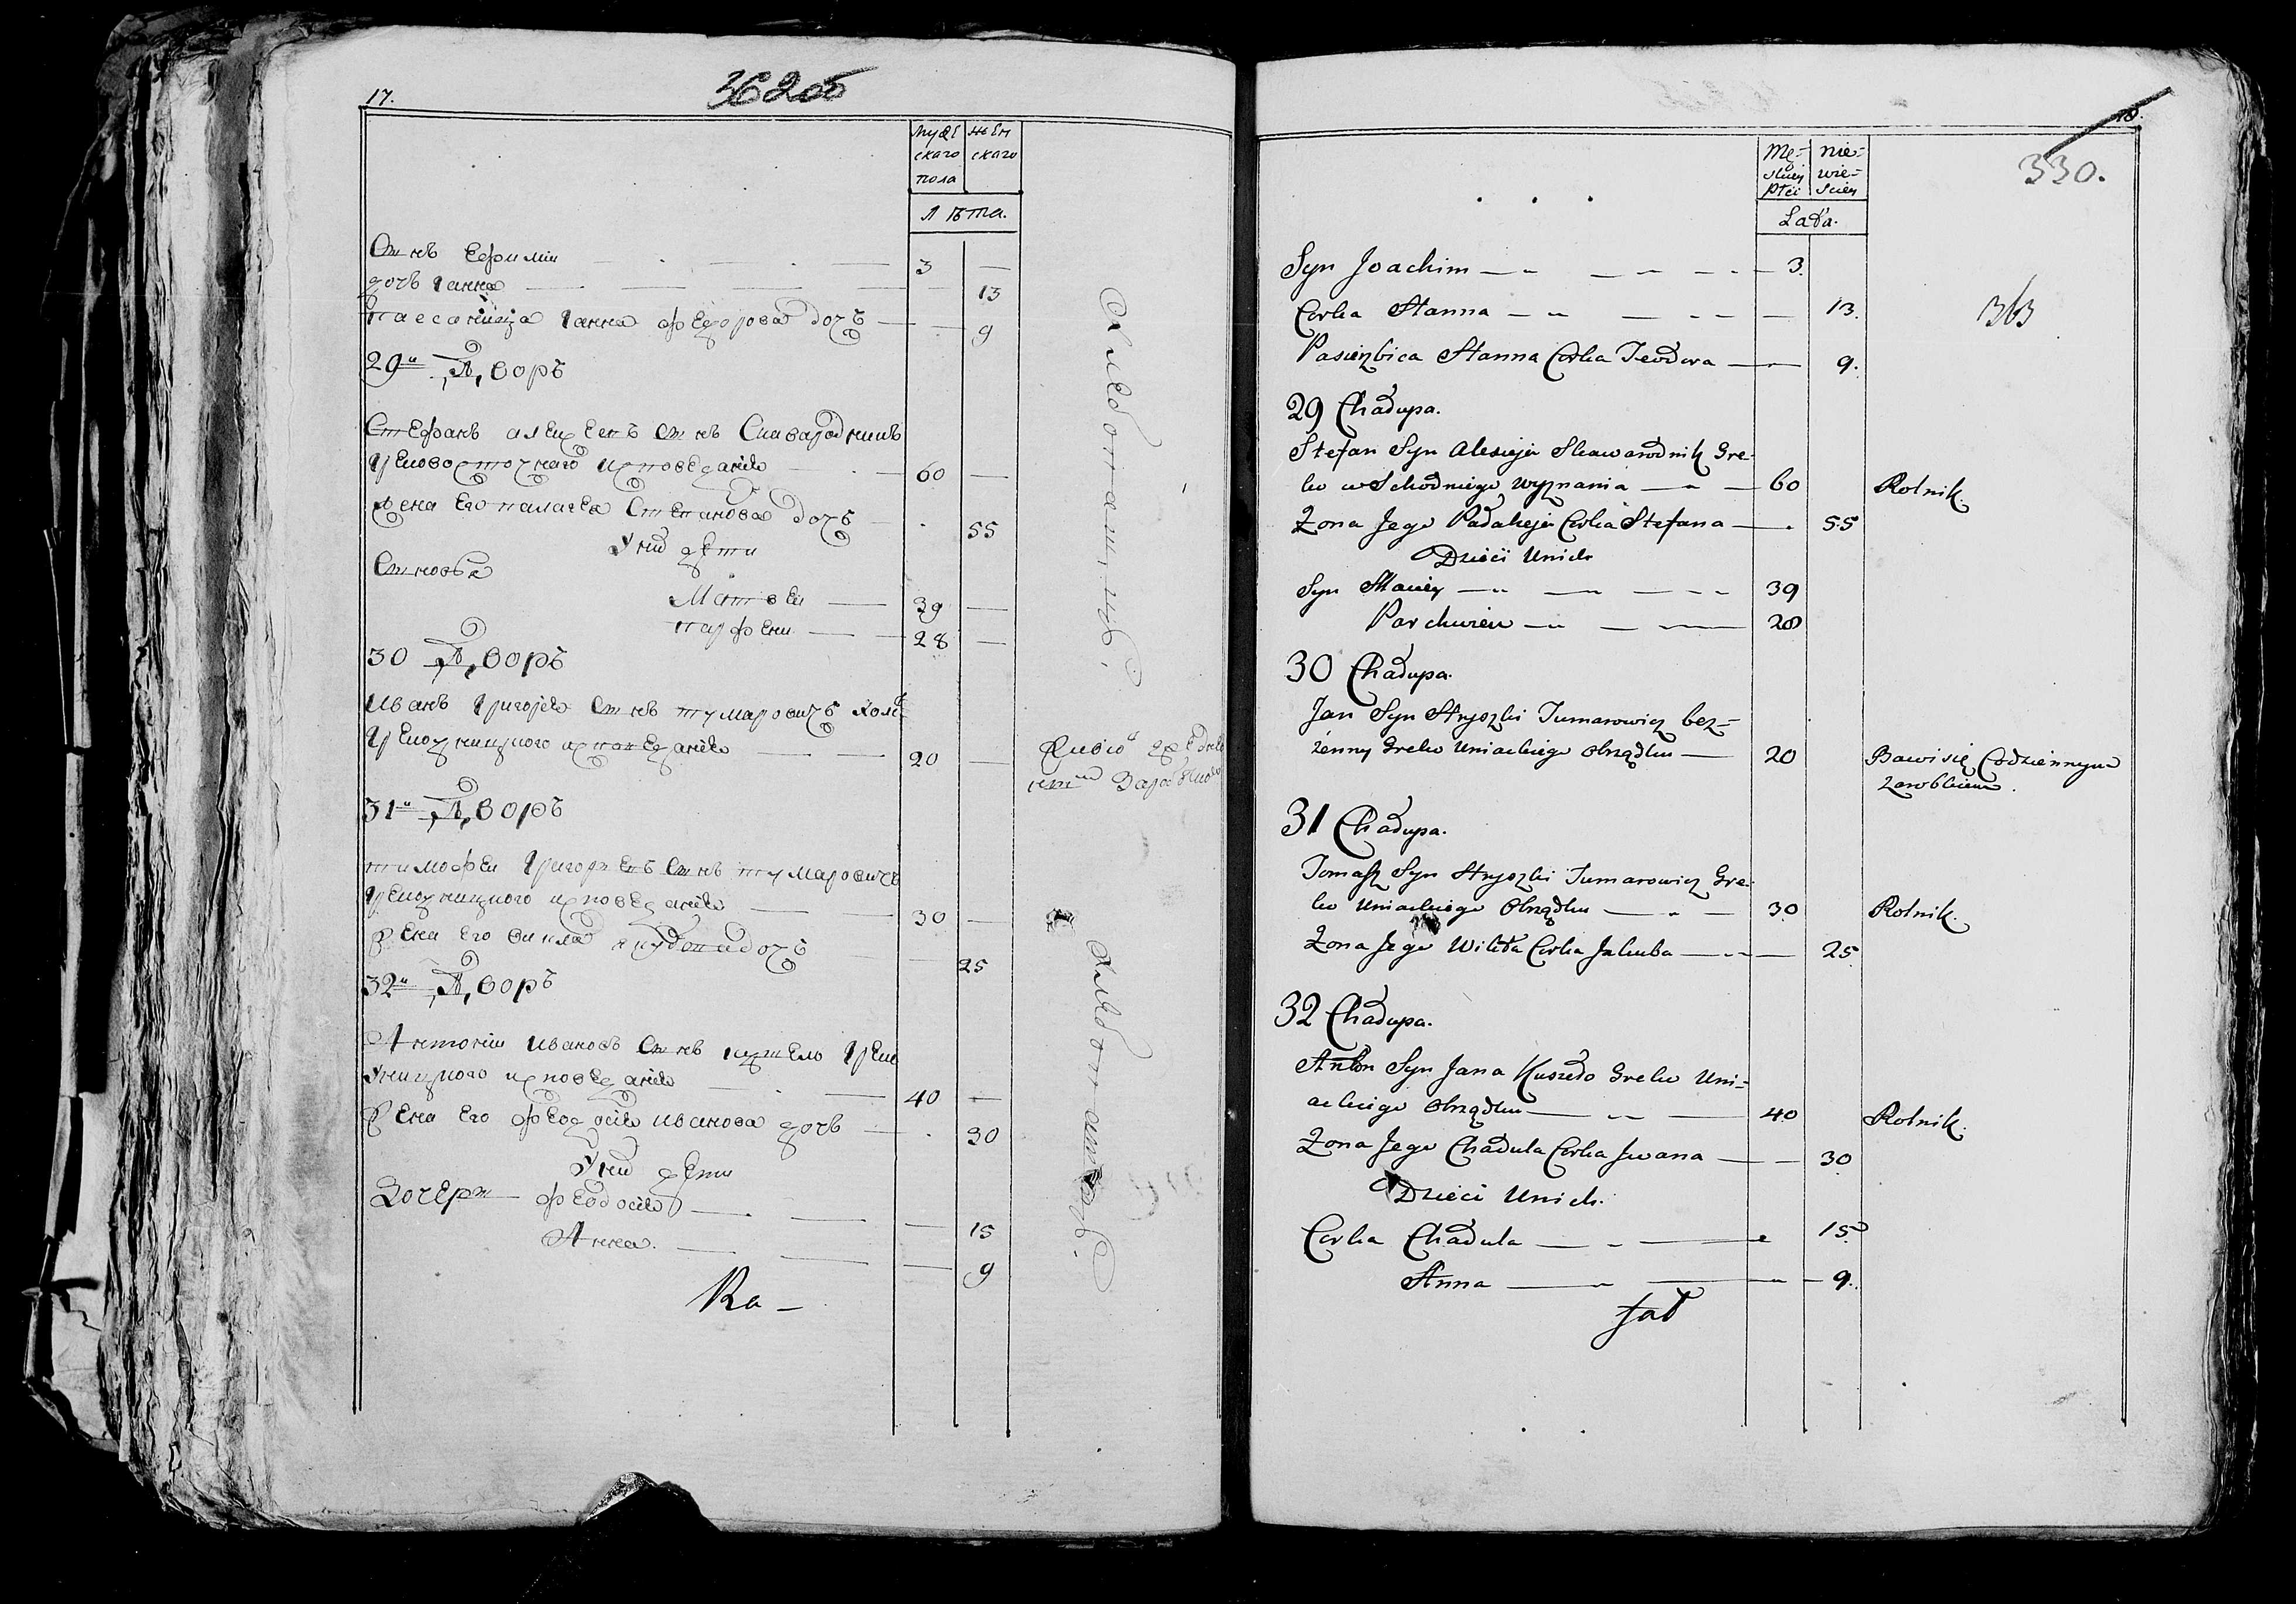 17.
362об
мужескаго пола
женскаго
Лѣта.
Сынъ Ефимiи 3 —
дочь Ганна — 13
пасербица Ганна Федорова дочь — 9
29й Дворъ
Стефанъ Алексеевъ Сынъ Скавародникъ
Грековосточнаго исповеданiя 60 —
Жена Его палагея Степанова дочь 55
У них дети
Сыновья
Матвеи 39 —
парфени 28 —
30 Дворъ
Иванъ Григорiевъ Сынъ тумаровичъ холостъ
Грекоунитского исповеданiя 20 —
31й Дворъ
тимофеи Григорьевъ Сынъ тумаровичъ
Грекоунитского исповеданiя 30 —
Жена Его викта дочь 25
32й Дворъ
Антонiи Ивановъ Сынъ Греко
Уницкого исповеданiя 40 —
Жена Его Феодосiя Иванова дочь 30
У них дети
Дочери Феодосiя 15
Анна — 9
Ка —
Хлебопашецъ.
Хлебопашецъ.
18.
330.
363
Męskiey Płci
niewieściey
Lata.
Syn Joachim — 3.
Corka Hanna — 13.
Pasierzbica Hanna Corka Teodora — 9.
29 Chałupa.
Stefan Syn Alexieja Skawarodnik Gre-
ko wschodniego wyznania — 60 Rolnik.
Żona Jego Pałaheja Corka Stefana — 55
Dzieci Unich
Syn Maciey — 39
Parchwien — 28
30 Chałupa.
Jan Syn Hryszki Tumarowicz bez-
żenny Greko Uniackiego Obrządku — 20 Bawi się Codziennym
Zarobkiem.
31 Chałupa.
Tomasz Syn Hryszki Tumarowicz Gre-
ko Uniackiego Obrządku — 30 Rolnik.
Żona Jego Wikta Corka Jakuba — 25
32 Chałupa.
Anton Syn Jana Greko Uni-
ackiego Obrządku — 40 Rolnik.
Żona Jego Chadula Corka Jwana — 30
Dzieci Unich.
Corka Chadula — 15
Anna — 9.